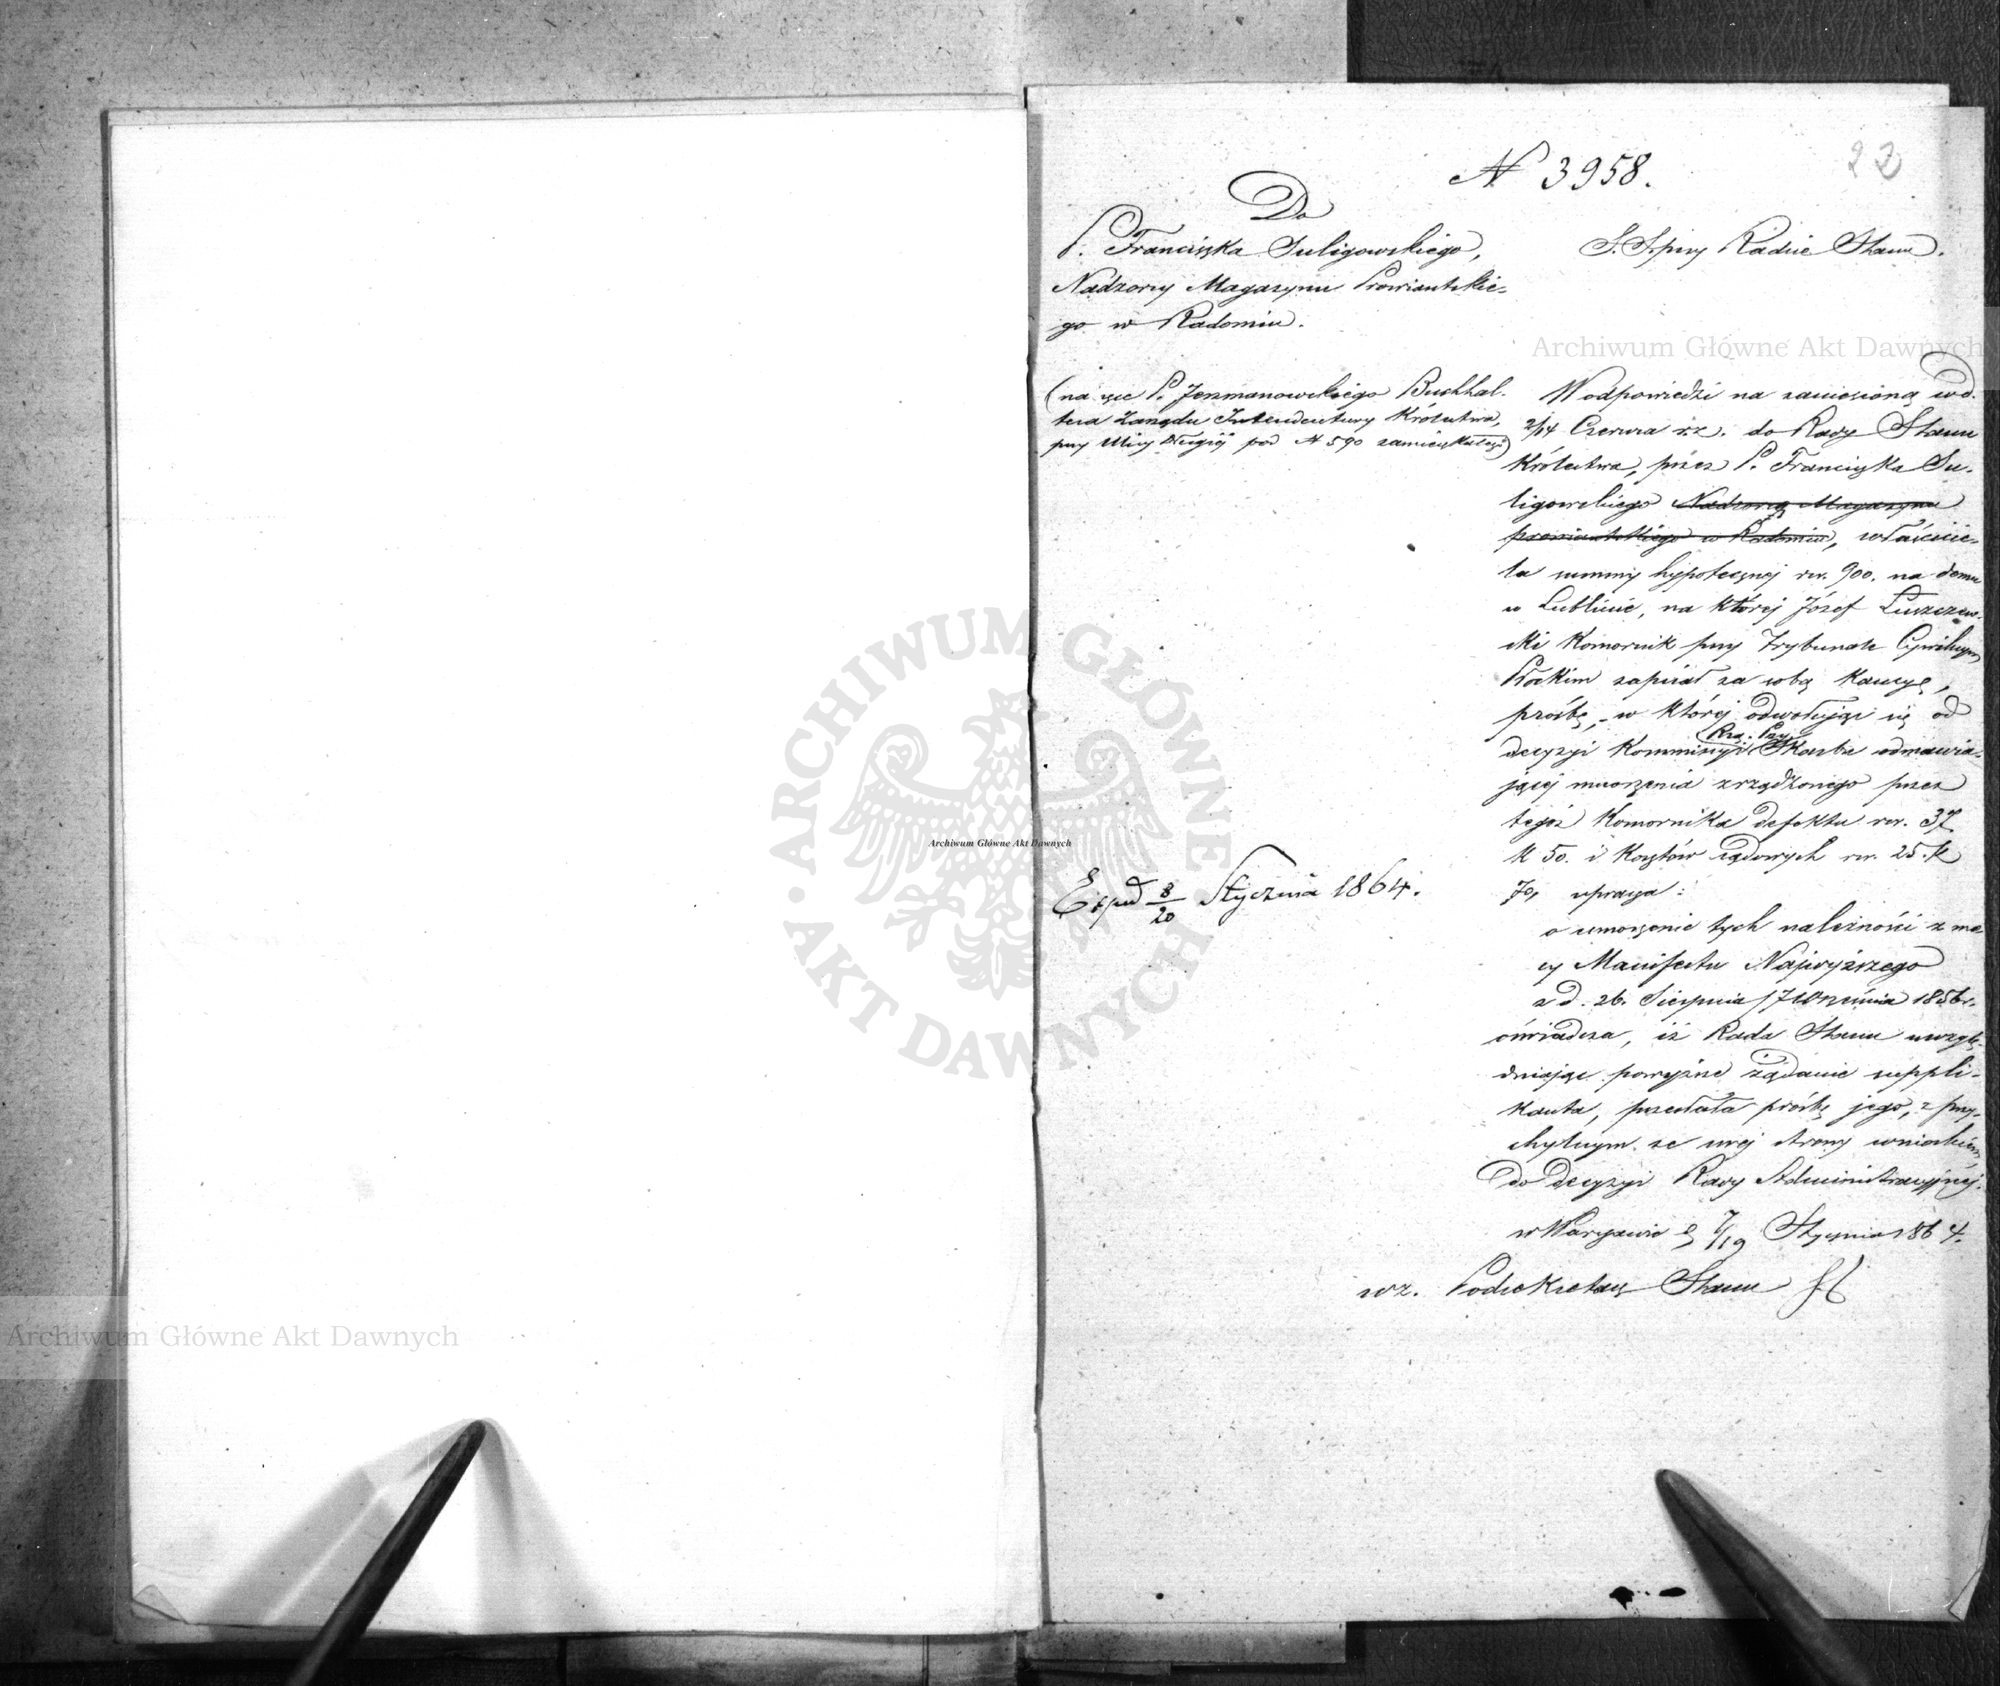 N 3958.
22
Do
P. Franciszka Suligowskiego,
Nadzorcy Magazynu Prowiantskie-
go w Radomiu.
(na ręce P. Jezmanowskiego Buchhal-
tera Zarządu Intendentury Królestwa,
przy Ulicy Długiéj pod N 590 zamieszkałego)
Exped 8/20 Stycznia 1864.
S. S. przy Radzie Stanu.
W odpowiedzi na zaniesioną w d.
2/14 Czerwca r.z. do Rady Stanu
Królestwa, przez P. Franciszka Su-
ligowskiego Nadzorcę Magazynu
prowiantskiego w Radomiu, właścicie-
la summy hypotecznej rsr. 900. na domu
w Lublinie, na której Józef Łuszczew-
ski Komornik przy Trybunale Cywilnym
Płockim zapisał za sobą Kaucyę,
prośbę, w której odwołując się od
decyzyi Kommissyi Rzą. Przy. Skarbu odmawia-
jącej umorzenia zrządzonego przez
tegoż Komornika defektu rsr. 37
k 50. i Kosztów sądowych rsr. 25. k
70, uprasza:
o umorzenie tych należności z mo
cy Manifestu Najwyższego
z d. 26. Sierpnia / 7 Września 1856 r.
oświadcza, iż Rada Stanu uwzglę-
dniając powyższe żądanie suppli-
kanta, przesłała prośbę jego, z przy-
chylnym ze swej strony wnioskiem
do decyzyi Rady Administracyjnéj.
w Warszawie d 7/19 Stycznia 1864.
wz. Podsekretarz Stanu
Archiwum Główne Akt Dawnych
ARCHIWUM GŁÓWNE · AKT DAWNYCH ·
Archiwum Główne Akt Dawnych
Archiwum Główne Akt Dawnych